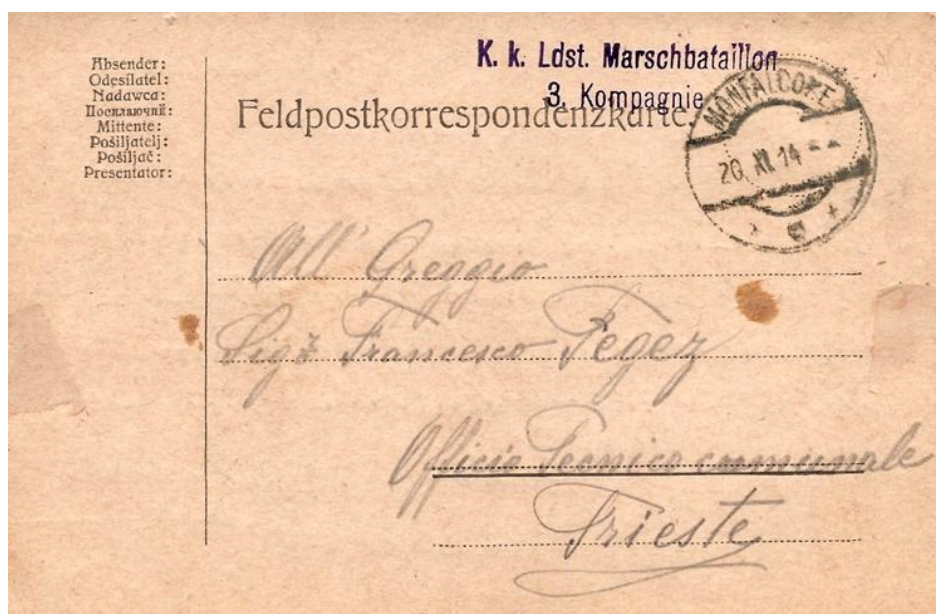 Absender:
Odesílatel:
Nadawca:
Посилаючий:
Mittente:
Pošiljatelj:
Pošiljač:
Presentator:
K. k. Ldst. Marschbataillon
3. Kompagnie
Feldpostkorrespondenzkarte.
MONFALCONE
20. XI. 14
All' Greggio
Sigr Francesco Fegez
Officio Tecnico communale
Trieste